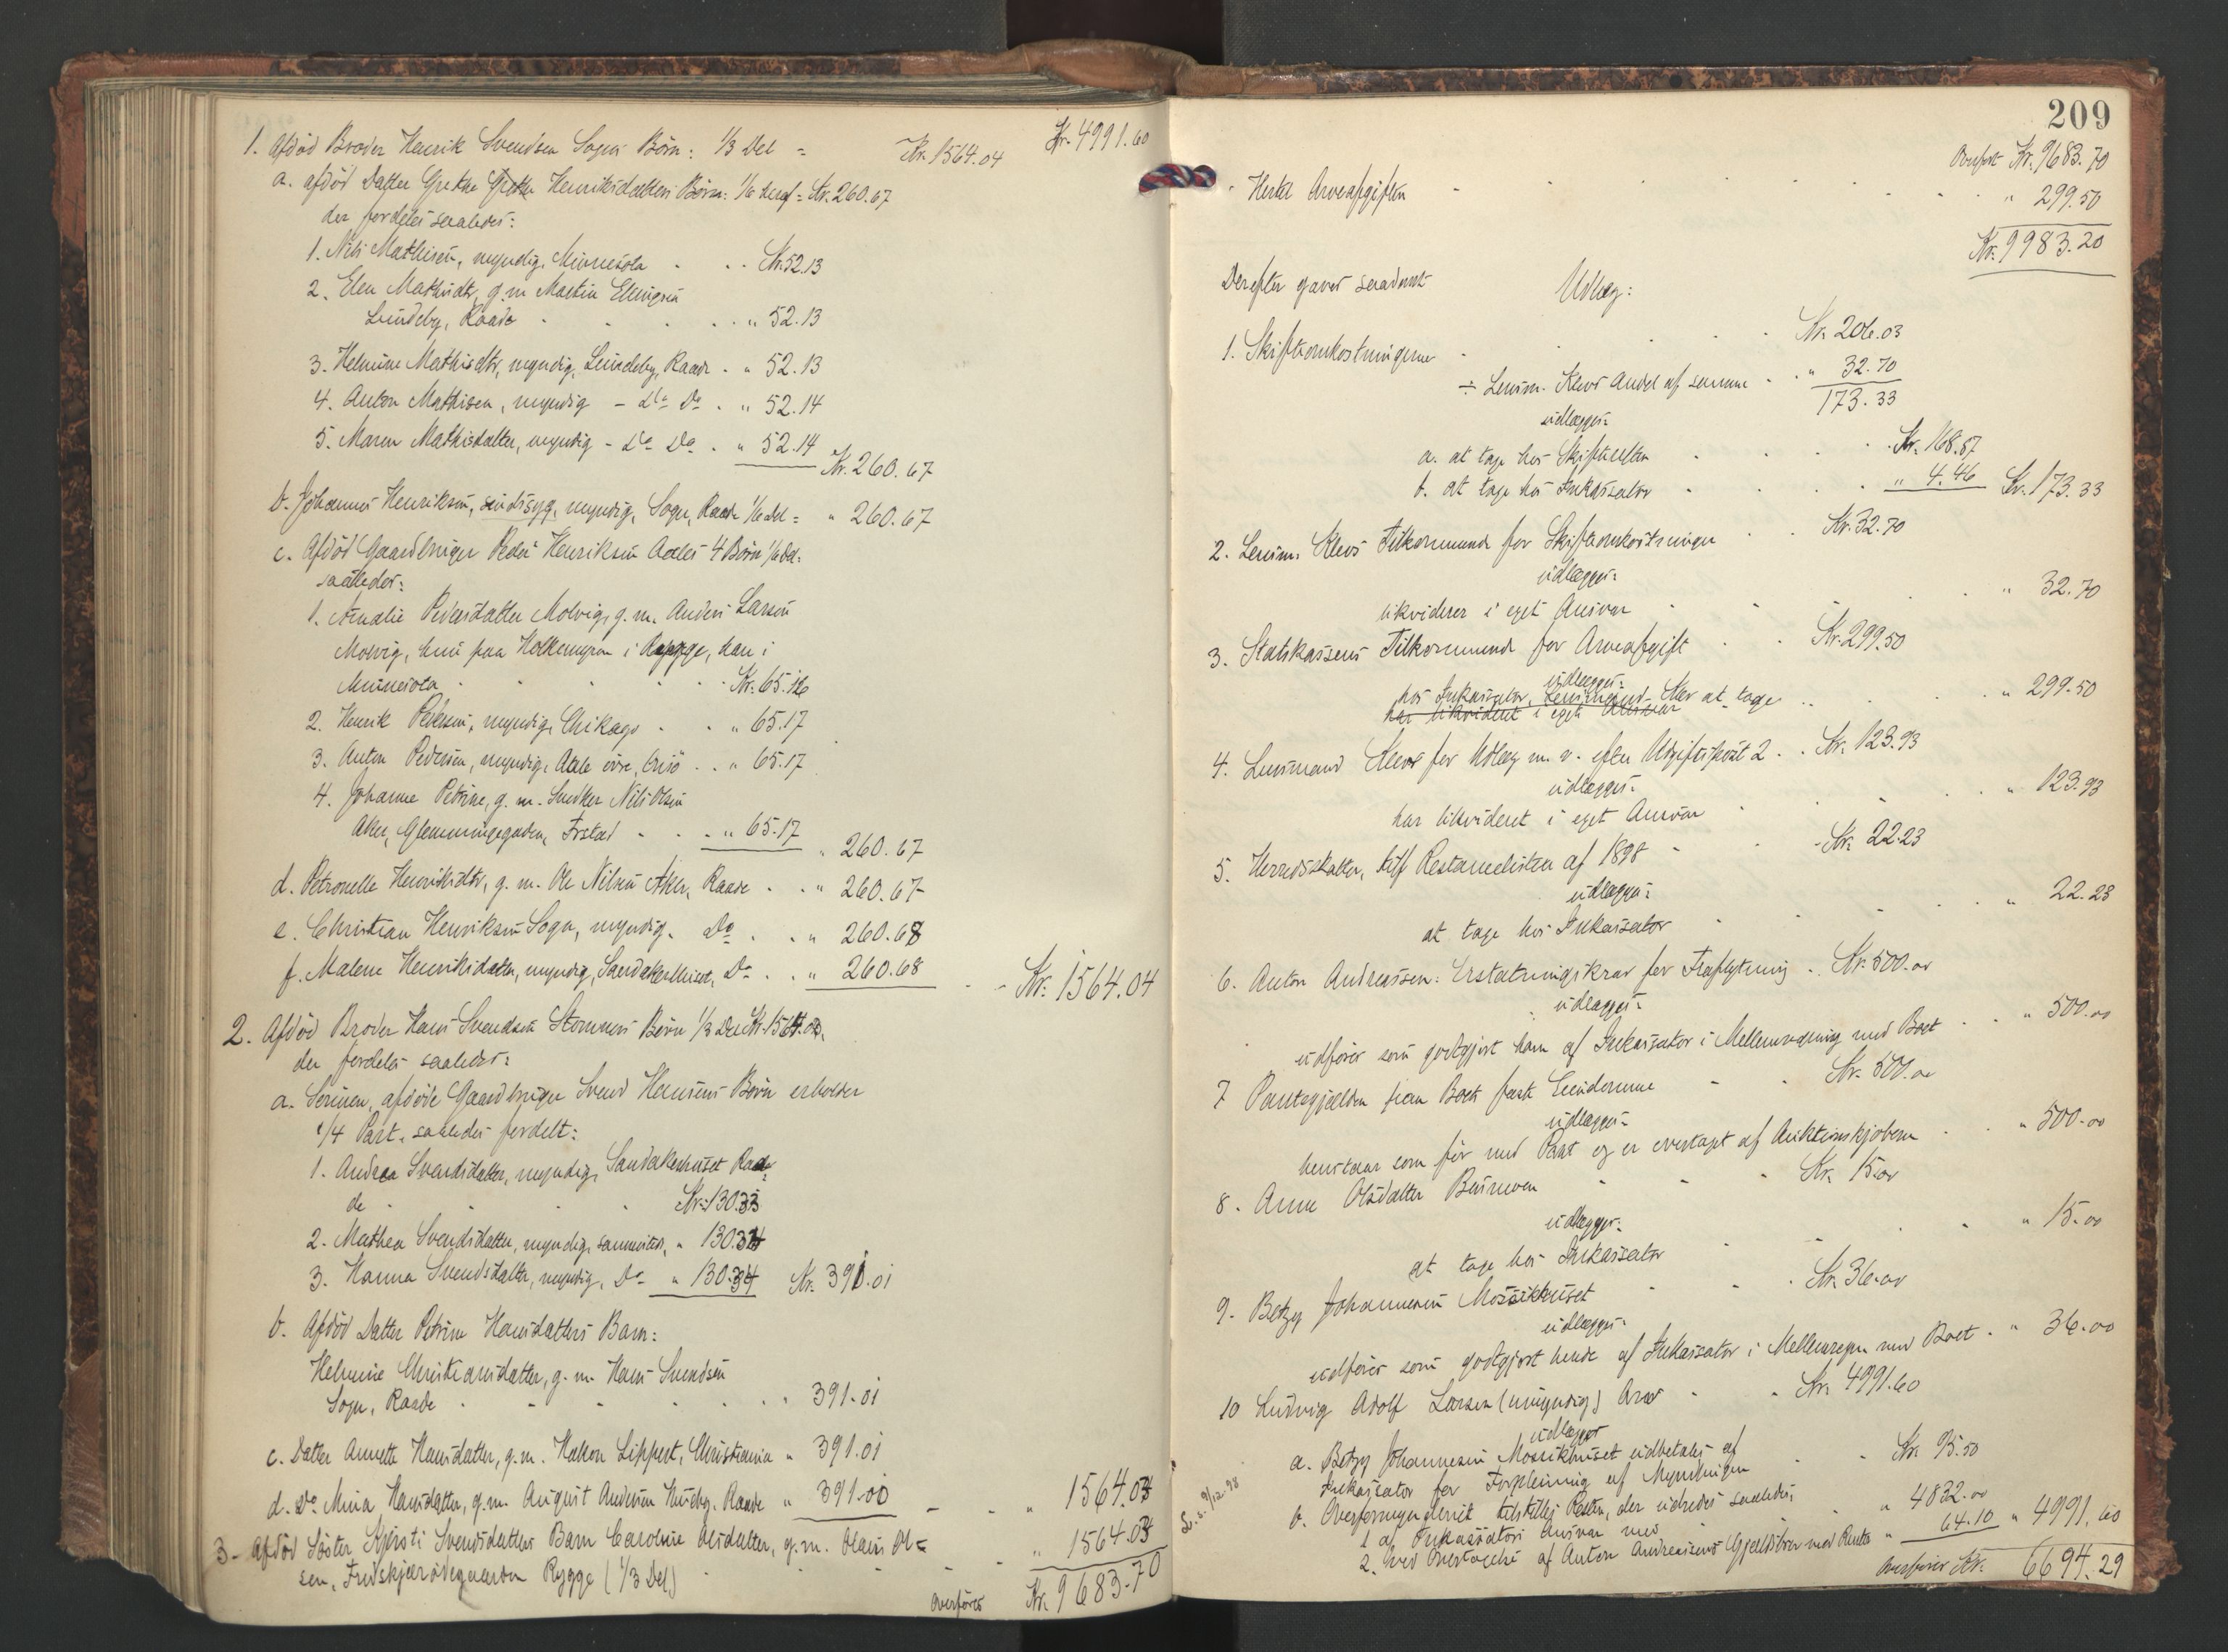 Kr. 4991.60
1. Afdöd Broder Henrik Svendsen Sogns Börn: 1/3 Del = Kr. 1564.04
a. afdöd Datter Grethe Henriksdatters Börn: 1/6 heraf = Kr. 260.67
der fordeles saaledes:
1. Nils Mathisen, myndig, Minnesota . . . Kr. 52.13
2. Elen Mathisdtr, g. m. Martin Ellingsen
Lundeby, Raade . . . " 52.13
3. Helmine Mathisdtr, myndig, Lundeby, Raade . " 52.13
4. Anton Mathisen, myndig - Do Do . " 52.14
5. Maren Mathisdatter, myndig - Do Do . " 52.14 Kr. 260.67
b. Johannes Henriksen, sindssyg, myndig, Sogn, Raade 1/6 Del = " 260.67
c. Afdöd Gaardbruger Peder Henriksen Aales 4 Börn 1/6 Del.
saaledes:
1. Amalie Pedersdatter Molvig, g. m. Anders Larsen
Molvig, hun paa i Rygge, han i
Minnesota . . . Kr. 65.16
2. Henrik Pedersen, myndig, Chikago . . " 65.17
3. Anton Pedersen, myndig, Aale övre, Onsö . . " 65.17
4. Johanne Petrine, g. m. Snedker Nils Olsen
Aker, Glemmingegaden, Frstad . . . " 65.17 " 260.67
d. Petronelle Henriksdtr, g. m. Ole Nilsen Aker, Raade . . " 260.67
e. Christian Henriksen Sogn, myndig. Do . . " 260.68
f. Malene Henriksdatter, myndig, Sandakerhuset, Do . . " 260.68 . - Kr. 1564.04
2. Afdöd Broder Hans Svendsen Störners Börn 1/3 Del Kr. 1564.03.
der fordeles saaledes:
a. Sönnen, afdöde Gaardbruger Svend Hansens Börn erholder
1/4 Part, saaledes fordelt:
1. Andrea Svendsdatter, myndig, Sandakerhuset Raa=
de . . . Kr. 130.33
2. Mathea Svendsdatter, myndig, sammesteds, " 130.34
3. Hanna Svendsdatter, myndig, Do " 130.34 Kr. 391.01
b. Afdöd Datter Petrine Hansdatters Barn:
Helmine Christiansdatter, g. m. Hans Svendsen
Sogn, Raade . . . " 391.01
c. Datter Annette Hansdatter, g. m. Hakon Lippert, Christiania " 391.01
d. Do Mina Hansdatter, g. m. August Andersen Raade " 391.00 - - " 1564.03
3. Afdöd Söster Kjersti Svendsdatters Barn Caroline Olsdatter, g. m. Olaus Ol=
sen, Rygge (1/3 Del) . . . " 1564.03
Overföres Kr. 9683.70
209
Overfört Kr. 9683.70
Hertil Arveafgiften . . . " 299.50
Kr. 9983.20
Derefter gaves saadant
Udlæg:
1. Skifteomkostningerne . . . Kr. 206.03
÷ Lensm. Klevs Andel af samme . . " 32.70
173.33
udlægges:
a. at tage hos Skifteretten . . . Kr. 168.87
b. at tage hos Inkassator . . . " 4.46 Kr. 173.33
2. Lensm. Klevs Tilkommende for Skifteomkostninger . . Kr. 32.70
udlægges:
likviderer i eget Ansvar . . . " 32.70
3. Statskassens Tilkommende for Arveafgift . . Kr. 299.50
udlægges:
hos Inkassator, Lensmand Klev at tage . . . " 299.50
har likvideret i eget Ansvar
4. Lensmand Klevs for Udlæg m. v. efter Udgiftspost 2 . . Kr. 123.93
udlægges:
har likvideret i eget Ansvar . . . " 123.93
5. Herredsskatter, tilf Restancelisten af 1898 . . Kr. 22.23
udlægges:
at tage hos Inkassator . . . " 22.23
6. Anton Andreassen: Erstatningskrav for Fraflytning . . Kr. 500.00
udlægges:
udföres som godtgjort ham af Inkassator i Mellemregning med Boet . . " 500.00
7 Pantegjælden fra Boets faste Eiendomme . . Kr. 500.00
udlægges:
henstaar som för med Pant og er overtaget af Auktionskjöberen . . " 500.00
8. Anne Olsdatter . . . Kr. 15.00
udlægges:
at tage hos Inkassator . . . " 15.00
9. Betzy Johannesen Mossikhuset . . . Kr. 36.00
udlægges:
udföres som godtgjort hende af Inkassator i Mellemregn. med Boet . " 36.00
10 Ludvig Adolf Larsen (umyndig) Arv . . Kr. 4991.60
udlægges
a. Betzy Johannesen Mossikhuset udbetales af
Inkassator for Forpleining af Myndlingen . . Kr. 95.50
b. Overformynderiet tilstilles Resten, der udredes saaledes,
L. s. 9/12-98
1 af Inkassators Ansvar med . . " 4832.00
2. ved Overtagelse af Anton Andreassens Gjeldsbrev med Renter " 64.10 " 4991.60
Overföres Kr. 6694.29